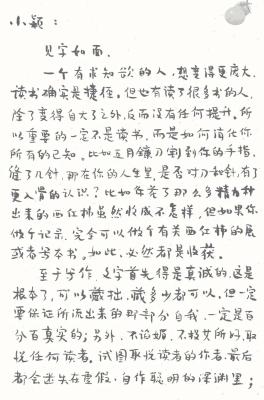 小颖：
见字如面.
一个有求知欲的人，想变得更庞大，
读书确实是捷径。但也有读了很多书的人，
除了变得自大了之外，反而没有任何提升。所
以重要的一定不是读书，而是如何消化你
所有的已知。比如五月镰刀割到你的手指，
缝了几针，那在你的人生里，是否对刀和针，有了
更入骨的认识？比如年费了那么多精力种
出来的西红柿虽然收成不怎样，但如果你
做个记录，完全可以做个有关西红柿的展
或者写本书。如此，必然都是收获。
至于写作，文字首先得是真诚的，这是
根本了，可以藏拙，藏多少都可以，但一定
要保证所流出来的那部分自我，一定是百
分百真实的；另外，不谄媚，不投其所好，取
悦任何读者。试图取悦读者的作者，最后
都会迷失在虚假、自作聪明的深渊里；